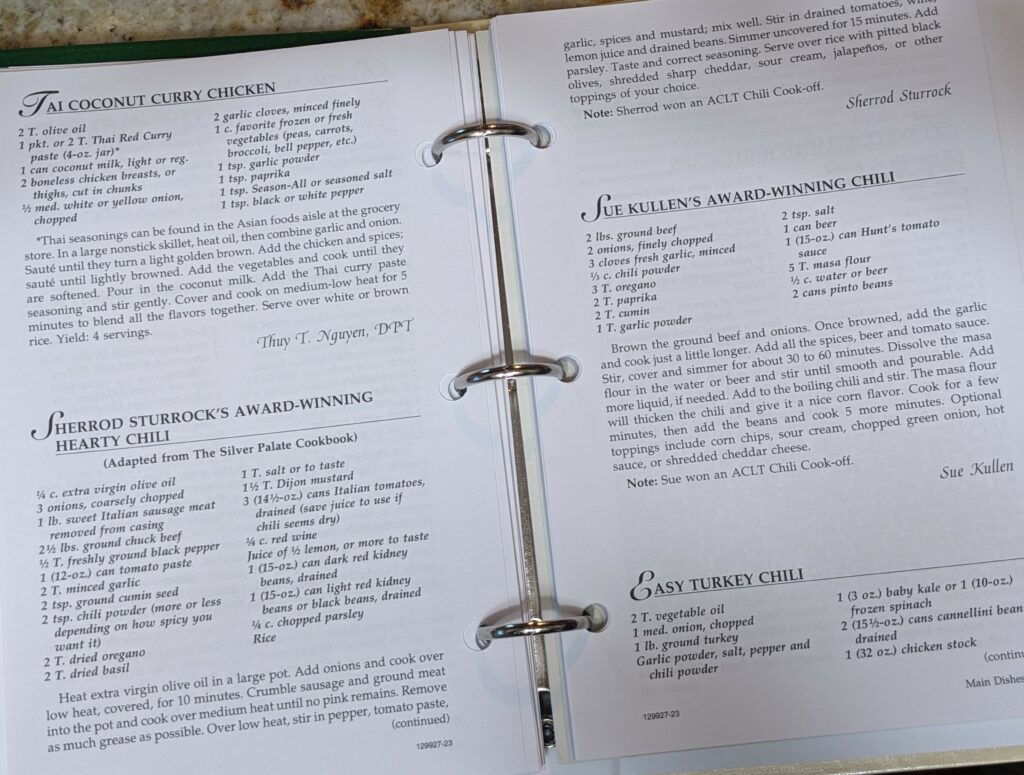 TAI COCONUT CURRY CHICKEN
2 T. olive oil
1 pkt. or 2 T. Thai Red Curry
paste (4-oz. jar)*
1 can coconut milk, light or reg.
2 boneless chicken breasts, or
thighs, cut in chunks
½ med. white or yellow onion,
chopped
2 garlic cloves, minced finely
1 c. favorite frozen or fresh
vegetables (peas, carrots,
broccoli, bell pepper, etc.)
1 tsp. garlic powder
1 tsp. paprika
1 tsp. Season-All or seasoned salt
1 tsp. black or white pepper
*Thai seasonings can be found in the Asian foods aisle at the grocery
store. In a large nonstick skillet, heat oil, then combine garlic and onion.
Sauté until they turn a light golden brown. Add the chicken and spices;
sauté until lightly browned. Add the vegetables and cook until they
are softened. Pour in the coconut milk. Add the Thai curry paste
seasoning and stir gently. Cover and cook on medium-low heat for 5
minutes to blend all the flavors together. Serve over white or brown
rice. Yield: 4 servings.
Thuy T. Nguyen, DPT
SHERROD STURROCK'S AWARD-WINNING
HEARTY CHILI
(Adapted from The Silver Palate Cookbook)
¼ c. extra virgin olive oil
3 onions, coarsely chopped
1 lb. sweet Italian sausage meat
removed from casing
2½ lbs. ground chuck beef
½ T. freshly ground black pepper
1 (12-oz.) can tomato paste
2 T. minced garlic
2 tsp. ground cumin seed
2 tsp. chili powder (more or less
depending on how spicy you
want it)
2 T. dried oregano
2 T. dried basil
1 T. salt or to taste
1½ T. Dijon mustard
3 (14½-oz.) cans Italian tomatoes,
drained (save juice to use if
chili seems dry)
¼ c. red wine
Juice of ½ lemon, or more to taste
1 (15-oz.) can dark red kidney
beans, drained
1 (15-oz.) can light red kidney
beans or black beans, drained
¼ c. chopped parsley
Rice
Heat extra virgin olive oil in a large pot. Add onions and cook over
low heat, covered, for 10 minutes. Crumble sausage and ground meat
into the pot and cook over medium heat until no pink remains. Remove
as much grease as possible. Over low heat, stir in pepper, tomato paste,
(continued)
129927-23
garlic, spices and mustard; mix well. Stir in drained tomatoes, wine,
lemon juice and drained beans. Simmer uncovered for 15 minutes. Add
parsley. Taste and correct seasoning. Serve over rice with pitted black
olives, shredded sharp cheddar, sour cream, jalapeños, or other
toppings of your choice.
Note: Sherrod won an ACLT Chili Cook-off.
Sherrod Sturrock
SUE KULLEN'S AWARD-WINNING CHILI
2 lbs. ground beef
2 onions, finely chopped
3 cloves fresh garlic, minced
⅓ c. chili powder
3 T. oregano
2 T. paprika
2 T. cumin
1 T. garlic powder
2 tsp. salt
1 can beer
1 (15-oz.) can Hunt's tomato
sauce
5 T. masa flour
½ c. water or beer
2 cans pinto beans
Brown the ground beef and onions. Once browned, add the garlic
and cook just a little longer. Add all the spices, beer and tomato sauce.
Stir, cover and simmer for about 30 to 60 minutes. Dissolve the masa
flour in the water or beer and stir until smooth and pourable. Add
more liquid, if needed. Add to the boiling chili and stir. The masa flour
will thicken the chili and give it a nice corn flavor. Cook for a few
minutes, then add the beans and cook 5 more minutes. Optional
toppings include corn chips, sour cream, chopped green onion, hot
sauce, or shredded cheddar cheese.
Note: Sue won an ACLT Chili Cook-off.
Sue Kullen
EASY TURKEY CHILI
2 T. vegetable oil
1 med. onion, chopped
1 lb. ground turkey
Garlic powder, salt, pepper and
chili powder
1 (3 oz.) baby kale or 1 (10-oz.)
frozen spinach
2 (15½-oz.) cans cannellini bean
drained
1 (32 oz.) chicken stock
(continu
Main Dishes
129927-23